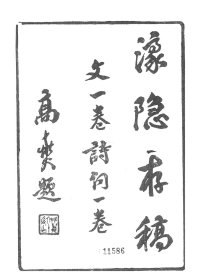 濠隐存稿
文一卷詩词一卷
高燮題
11586